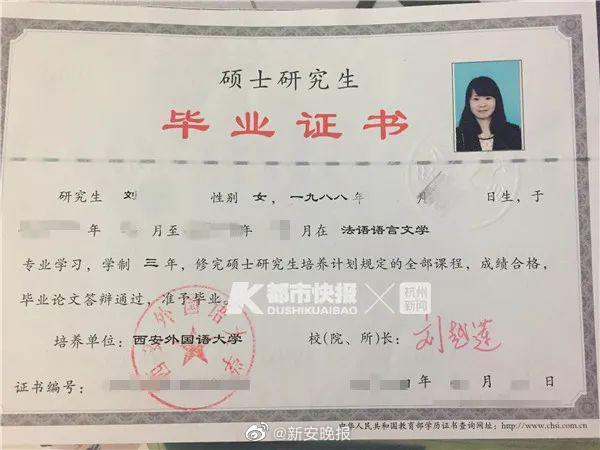 硕士研究生
毕业证书
研究生 刘 性别 女，一九八八年 月 日生，于
年 月至 年 月在 法语语言文学
专业学习，学制 三 年，修完硕士研究生培养计划规定的全部课程，成绩合格，
毕业论文答辩通过，准予毕业。
都市快报
DUSHIKUAIBAO
杭州
新闻
培养单位：西安外国语大学
校(院、所)长：刘越莲
西安外国语大学
证书编号：
年 月 日
中华人民共和国教育部学历证书查询网址：http://www.chsi.com.cn
@新安晚报